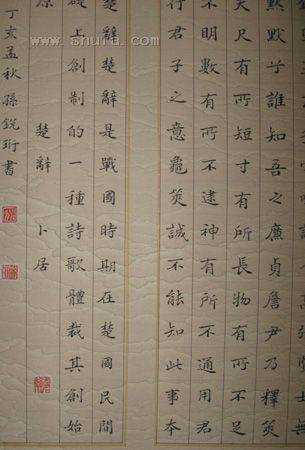 士無
默默兮誰知吾之廉貞詹尹乃釋筴
夫尺有所短寸有所長物有所不足
不明數有所不逮神有所不通用君
行君子之意龜筴誠不能知此事本
楚辭楚辭是戰國時期在楚國民間
礎上創制的一種詩歌體裁其創始
原 楚辭 卜居
丁亥孟秋孫銳珩書
www.shufa.com